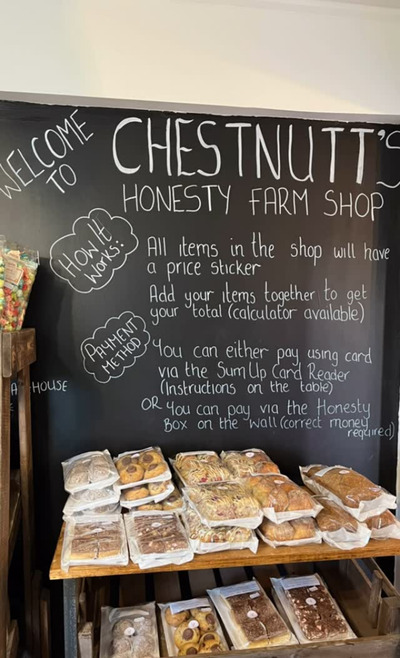 WELCOME
TO
CHESTNUTT'S
HONESTY FARM SHOP
How It
Works:
All items in the shop will have
a price sticker
Add your items together to get
your total (calculator available)
PAYMENT
METHOD
You can either pay using card
via the SumUp Card Reader
(Instructions on the table)
OR You can pay via the Honesty
Box on the wall (correct money
required)
HOUSE